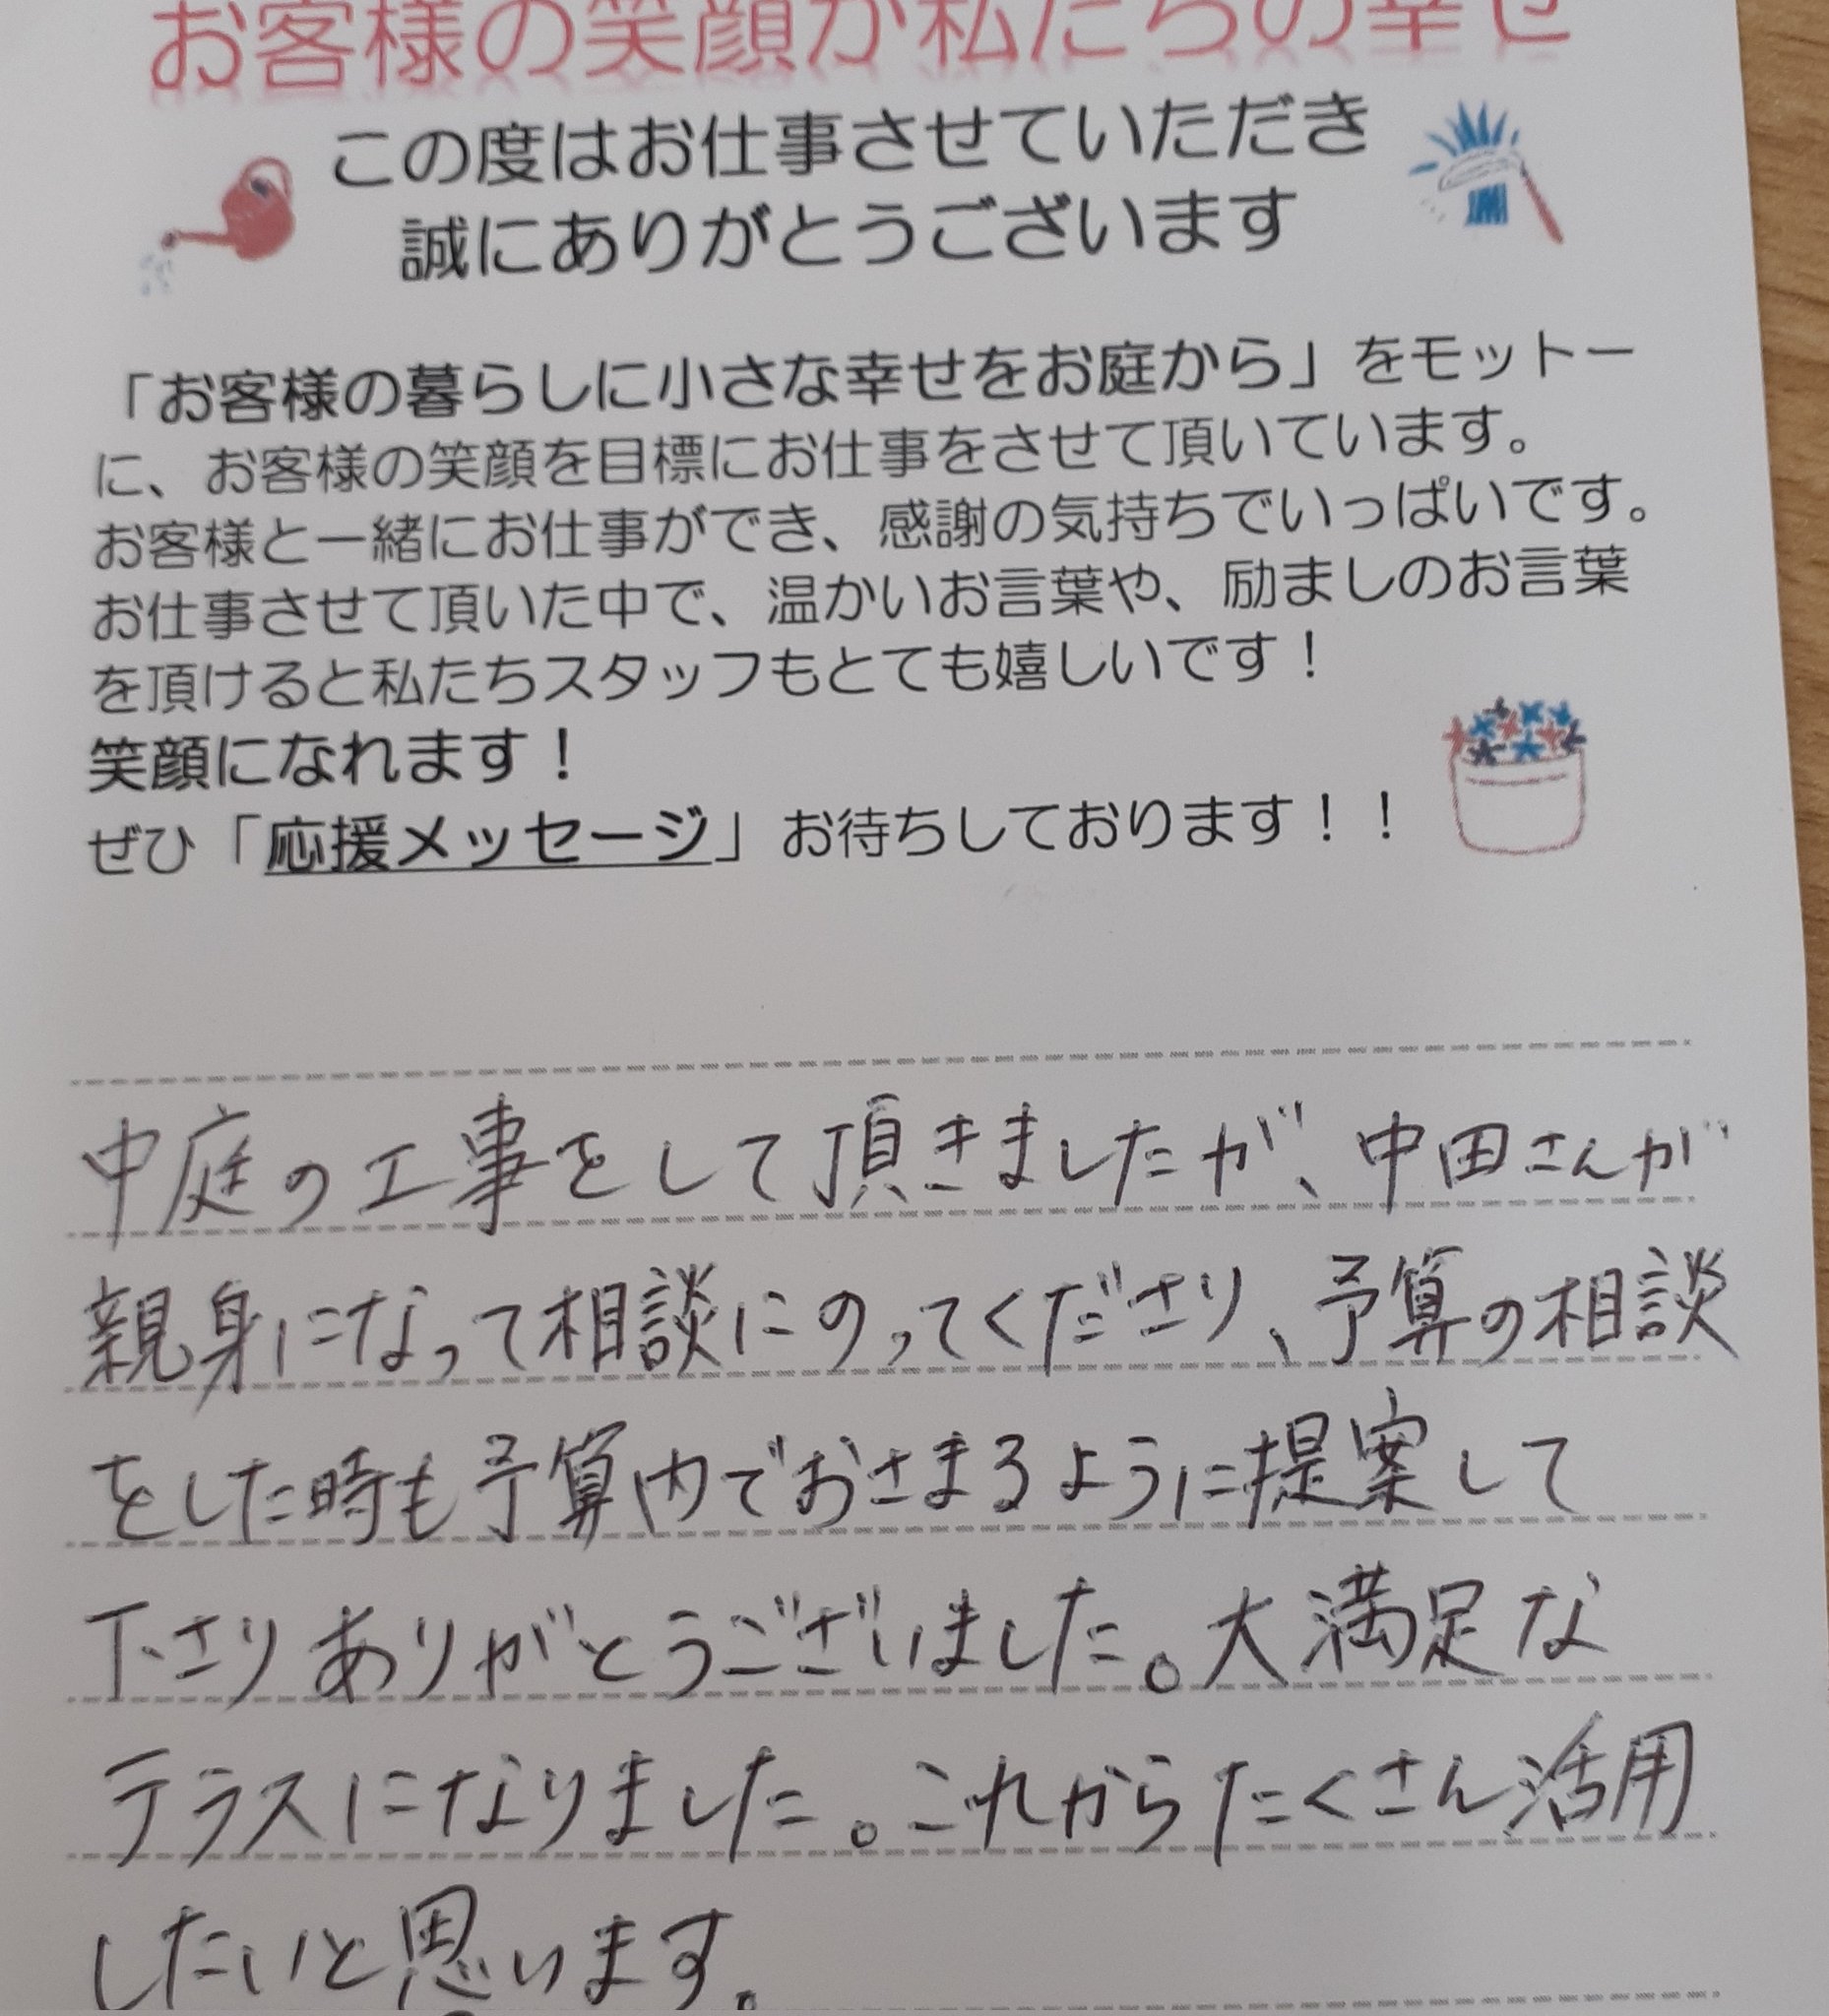 お客様の笑顔が私たちの幸せ
この度はお仕事させていただき
誠にありがとうございます
「お客様の暮らしに小さな幸せをお庭から」をモットー
に、お客様の笑顔を目標にお仕事をさせて頂いています。
お客様と一緒にお仕事ができ、感謝の気持ちでいっぱいです。
お仕事させて頂いた中で、温かいお言葉や、励ましのお言葉
を頂けると私たちスタッフもとても嬉しいです！
笑顔になれます！
ぜひ「応援メッセージ」お待ちしております！！
中庭の工事をして頂きましたが、中田さんが
親身になって相談にのってくださり、予算の相談
をした時も予算内でおさまるように提案して
下さりありがとうございました。大満足な
テラスになりました。これからたくさん活用
したいと思います。